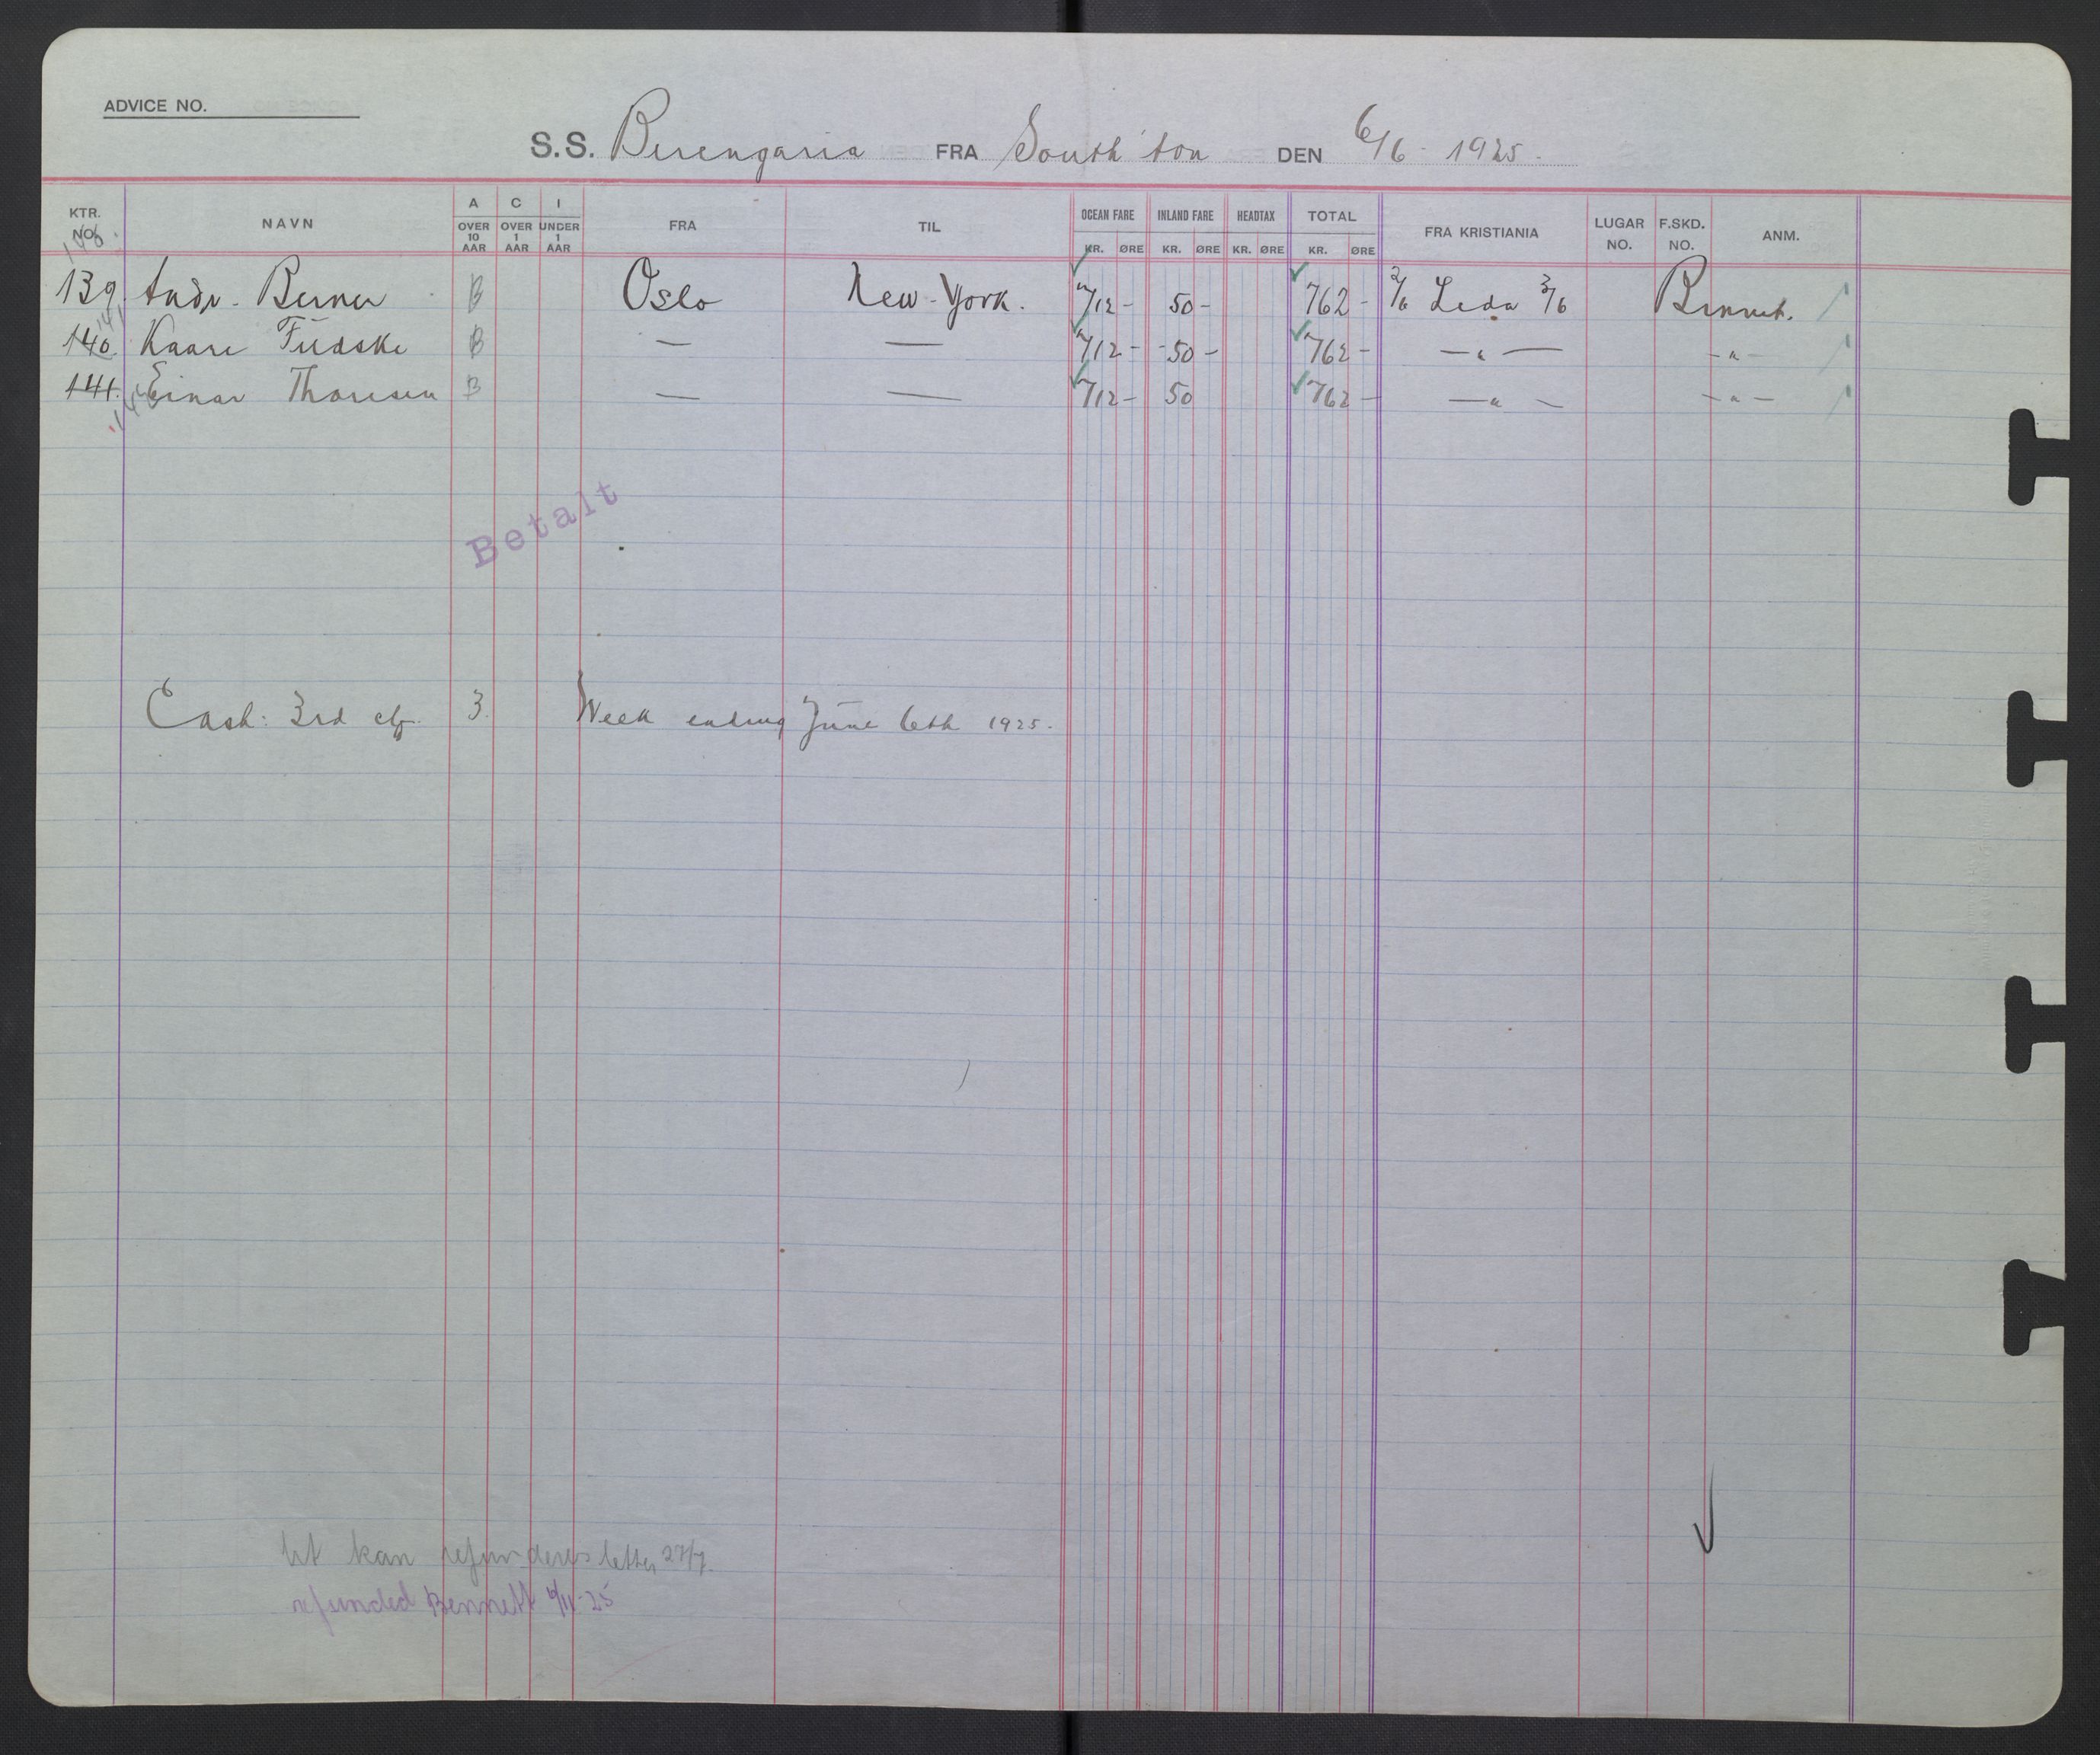 ADVICE NO.
S.S. Berengaria FRA South'ton DEN 6/6 - 1925.
KTR. NO. NAVN A OVER 10 AAR C OVER 1 AAR I UNDER 1 AAR FRA TIL OCEAN FARE KR. ØRE INLAND FARE KR. ØRE HEADTAX KR. ØRE TOTAL KR. ØRE FRA KRISTIANIA LUGAR NO. F.SKD. NO. ANM.
139. Andr. Berner B Oslo New-York. 712 - 50 - 762 - 2/6 Leda 3/6 Bennet.
140. Kaare B — — 712 - 50 - 762 - — " — - " -
141. Einar Thoresen B — — 712 - 50 762 - — " — - " -
Betalt
Cash: 3rd 3. Week ending June 6th 1925.
kan refunderes letter 27/7.
refunded Bennett